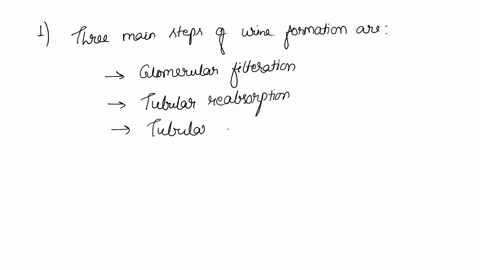 1) Three main steps of urine formation are:
→ Glomerular filteration
→ Tubular reabsorption
→ Tubular